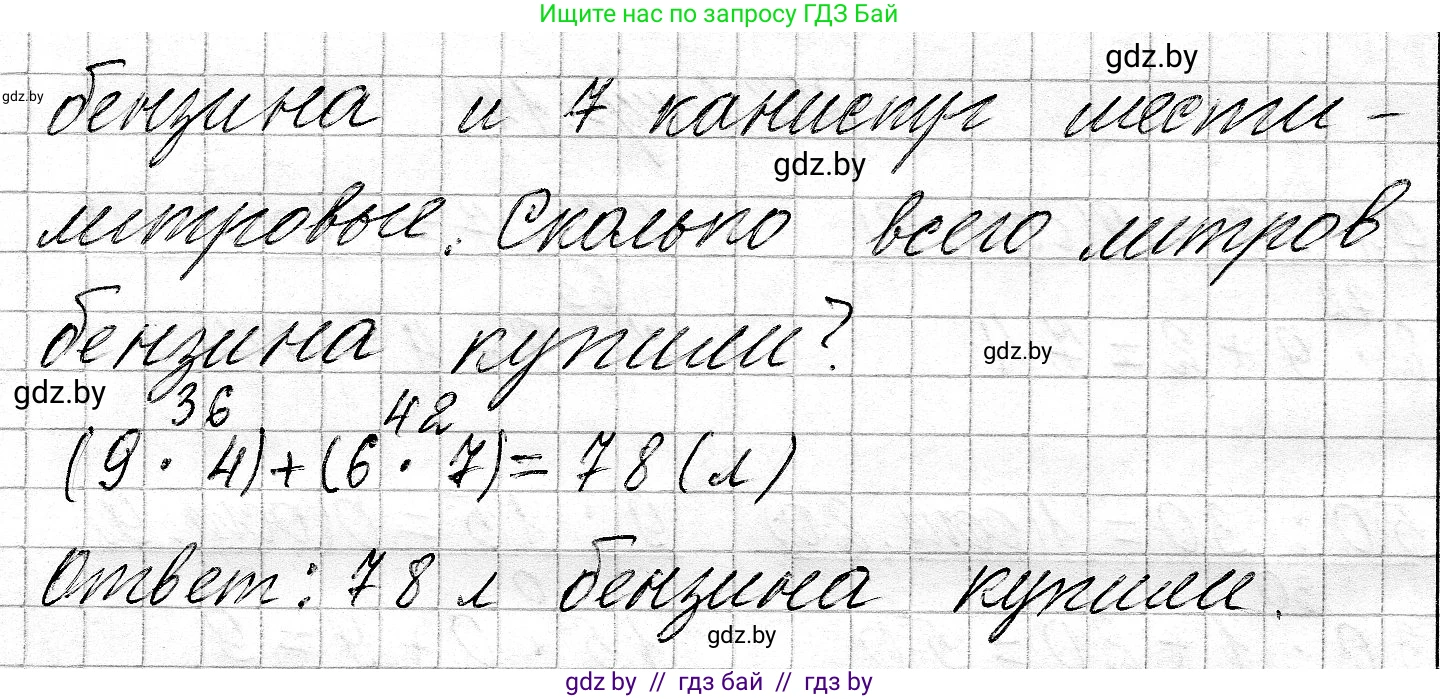 Ищите нас по запросу ГДЗ Бай
gdz.by
gdz.by
бензина и 7 канистр шести-
gdz.by
литровые. Сколько всего литров
бензина купили?
gdz.by
gdz.by
36 42
(9 · 4) + (6 · 7) = 78 (л)
Ответ: 78 л бензина купили.
gdz.by
gdz.by // гдз бай // гдз by